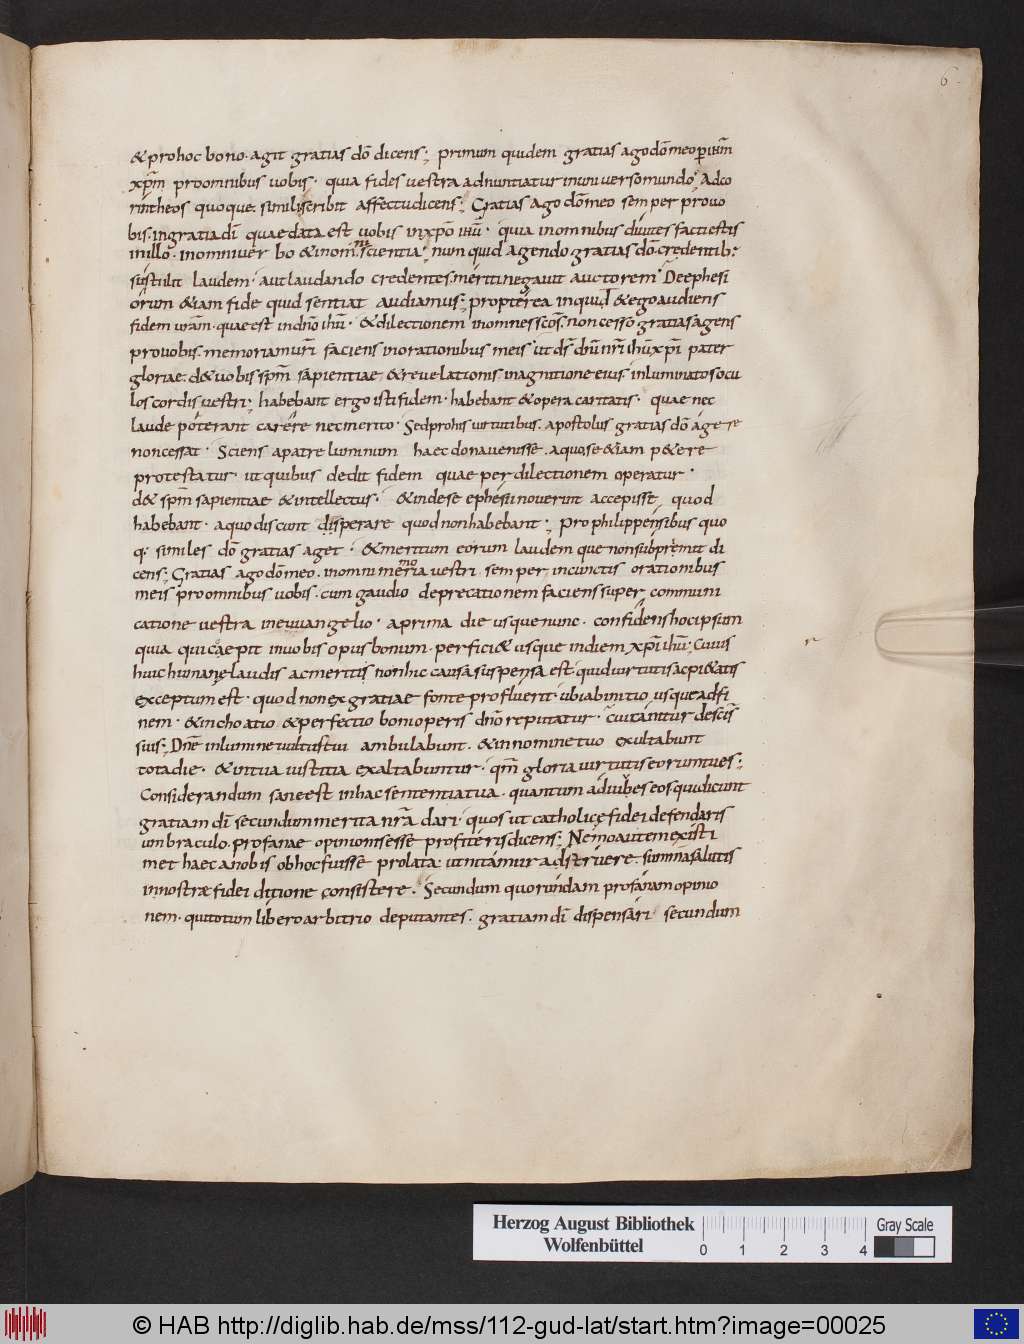 6
& pro hoc bono · agit gratias dō dicens ; primum quidem gratias ago dō meo p ihm̄
xp̄m pro omnibus uobis · quia fides uestra adnuntiatur in uniuerso mundo ; Ad co
rintheos quoque simili scribit affectu dicens ; Gratias ago dō meo semper pro uo
bis · in gratia dī quae data est uobis in xp̄o ihū · quia in omnibus diuites facti estis
in illo · in omni uer bo & in omni scientia ; num quid agendo gratias dō · credentib:
sustulit laudem · aut laudando credentes · meriti negauit auctorem ; De ephesi
orum &iam fide quid sentiat audiamus ; propterea inquid & ego audiens
fidem uram̄ · quae est in dnō ihū · & dilectionem in omnes scōs · non cesso gratias agens
pro uobis · memoriam urī faciens in orationibus meis · ut ds̄ dnī nrī ihū xp̄i pater
gloriae · d& uobis sp̄m sapientiae & reuelationis · in agnitione eius · inluminatos ocu
los cordis uestri ; habebant ergo isti fidem · habebant & opera caritatis · quae nec
laude poterant carere nec merito · Sed pro his uirtutibus · apostolus gratias dō agere
non cessat · Sciens a patre luminum haec dona uenisse · a quo se &iam p&ere
protestatur · ut quibus dedit fidem quae per dilectionem operatur ·
d& sp̄m sapientiae & intellectus · & inde se ephesii nouerint accepisse quod
habebant · a quo discunt disperare quod non habebant ; Pro philippensibus quo
q: similes dō gratias aget · & meritum eorum laudem que non subpremit di
cens ; Gratias ago dō meo · in omni memoria uestri semper in cunctis orationibus
meis pro omnibus uobis · cum gaudio deprecationem faciens super communi
catione uestra in euuangelio · a prima die usque nunc · confidens hoc ipsum
quia qui caepit in uobis opus bonum · perfici& usque in diem xp̄i ihū ; Cuius
huic humane laudis ac meritis non hic causa suspensa est · quid uirtutis ac pi&atis
exceptum est · quod non ex gratiae fonte profluerit · ubi ab initio usque ad fi
nem · & inchoatio & perfectio boni operis dnō reputatur · cui cantitur de scīs
suis ; Dnē in lumine uultus tui ambulabunt · & in nomine tuo exultabunt
tota die · & in tua iustitia exaltabuntur · qm̄ gloria uirtutis eorum tu es ;
Considerandum sane est in hac sententia tua · quantum adiubes eos qui dicunt
gratiam dī secundum merita nrā dari · quos ut catholicę fidei defendaris
umbraculo · profanae opinionis esse profiteris dicens ; Nemo autem existi
met haec a nobis ob hoc fuisse prolata · ut nitamur adstruere · summa salutis
in nostrae fidei ditione consistere · Secundum quorundam profanam opinio
nem · qui totum libero arbitrio deputantes · gratiam dī dispensari secundum
Herzog August Bibliothek
Wolfenbüttel
0 1 2 3 4
Gray Scale
© HAB http://diglib.hab.de/mss/112-gud-lat/start.htm?image=00025